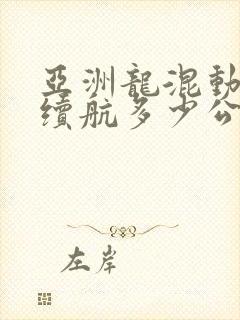 亞洲龍混動
續航多少公
左岸